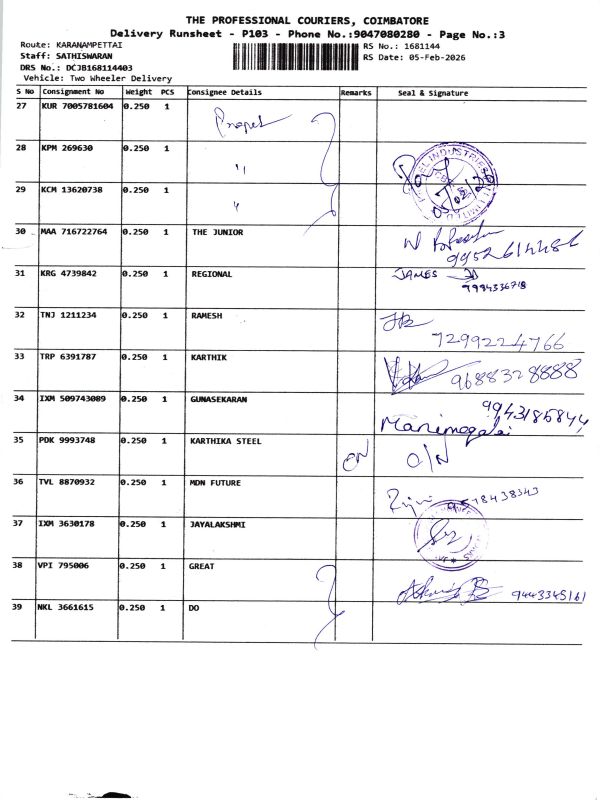 THE PROFESSIONAL COURIERS, COIMBATORE
Delivery Runsheet - P103 - Phone No.:9047080280 - Page No.:3
Route: KARANAMPETTAI
RS No.: 1681144
Staff: SATHISWARAN
RS Date: 05-Feb-2026
DRS No.: DCJB168114403
Vehicle: Two Wheeler Delivery
S No Consignment No Weight PCS Consignee Details Remarks Seal & Signature
27 KUR 7005781604 0.250 1 Propel
28 KPM 269630 0.250 1 "
29 KCM 13620738 0.250 1 "
30 MAA 716722764 0.250 1 THE JUNIOR
31 KRG 4739842 0.250 1 REGIONAL JAMES
32 TNJ 1211234 0.250 1 RAMESH
7299224766
33 TRP 6391787 0.250 1 KARTHIK 9688328888
34 IXM 509743089 0.250 1 GUNASEKARAN
Manimegalai
35 PDK 9993748 0.250 1 KARTHIKA STEEL ON O/N
36 TVL 8870932 0.250 1 MDN FUTURE 9578438343
37 IXM 3630178 0.250 1 JAYALAKSHMI
38 VPI 795006 0.250 1 GREAT 9443345161
39 NKL 3661615 0.250 1 DO